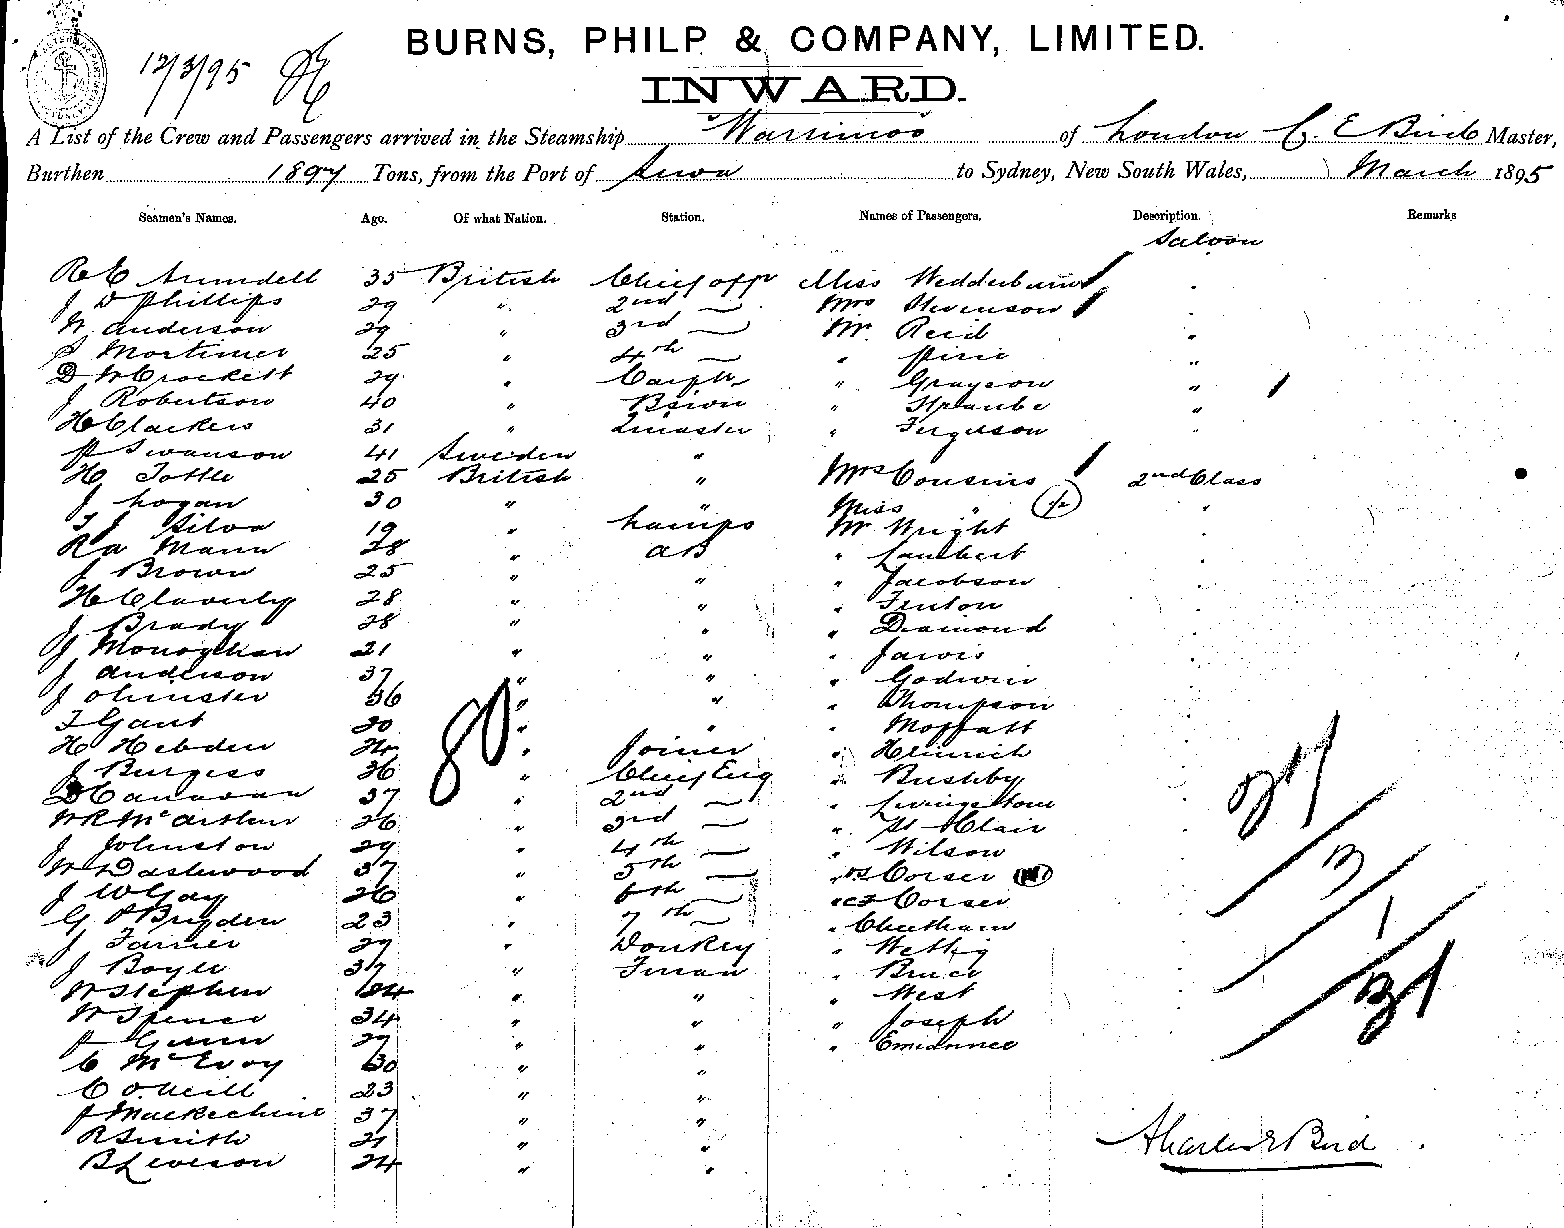 BURNS, PHILP & COMPANY, LIMITED.
12/3/95
INWARD.
A List of the Crew and Passengers arrived in the Steamship Warrimoo of London C. E Bird Master,
Burthen 1897 Tons, from the Port of Suva to Sydney, New South Wales, March 1895
Seamen's Names. Age. Of what Nation. Station. Names of Passengers. Description. Remarks
Saloon
R E Arundell 35 British Chief offr Miss Wedderburn
J D Phillips 29 " 2nd — Mrs Stevenson "
W. Anderson 29 " 3rd — Mr Reid "
S Mortimer 25 " 4th — " Pirie "
D W Crockett 29 " Carptr " Grayson "
J Robertson 40 " Bswn " Straube "
H Clackers 31 " Qmaster " Ferguson
P Swanson 41 Sweden "
H Tottle 25 British " Mrs Cousins 2nd Class
J Logan 30 " " Miss " 1/2 "
T J Silva 19 " Lamps Mr Wright
R A Mann 28 " AB " Lambert
J Brown 25 " " " Jacobson
H Claverly 28 " " " Fenton
J Brady 28 " " " Diamond
J Monoghan 21 " " " Jarvis
J Anderson 37 " " " Godwin
J Olmster 36 " " " Thompson
T Gant 20 " " " Moffatt
80
H Hebden 24 " Joiner " Heinrich
J Burgess 36 " Chief Eng " Bushby
D Canavan 37 " 2nd — " Livingstone
W R McArthur 26 " 3rd — " St Clair
J Johnston 29 " 4th — " Wilson
W Dashwood 37 " 5th — " Corser
J W Gay 26 " 6th — " Corser
G P Bryden 23 " 7th — " Cheetham
J Farrier 29 " Donkey " Wettig
J Boyle 37 " Fireman " Bruce
W Stephen 34 " " " West
W Spence 34 " " " Joseph
J Gunn 27 " " "
C McEvoy 30 " "
C O'Neill 23 " "
J Mackechnie 37 " "
R Smith 21 " "
B Leveson 24 " "
27
3
1
31
Charles E Bird